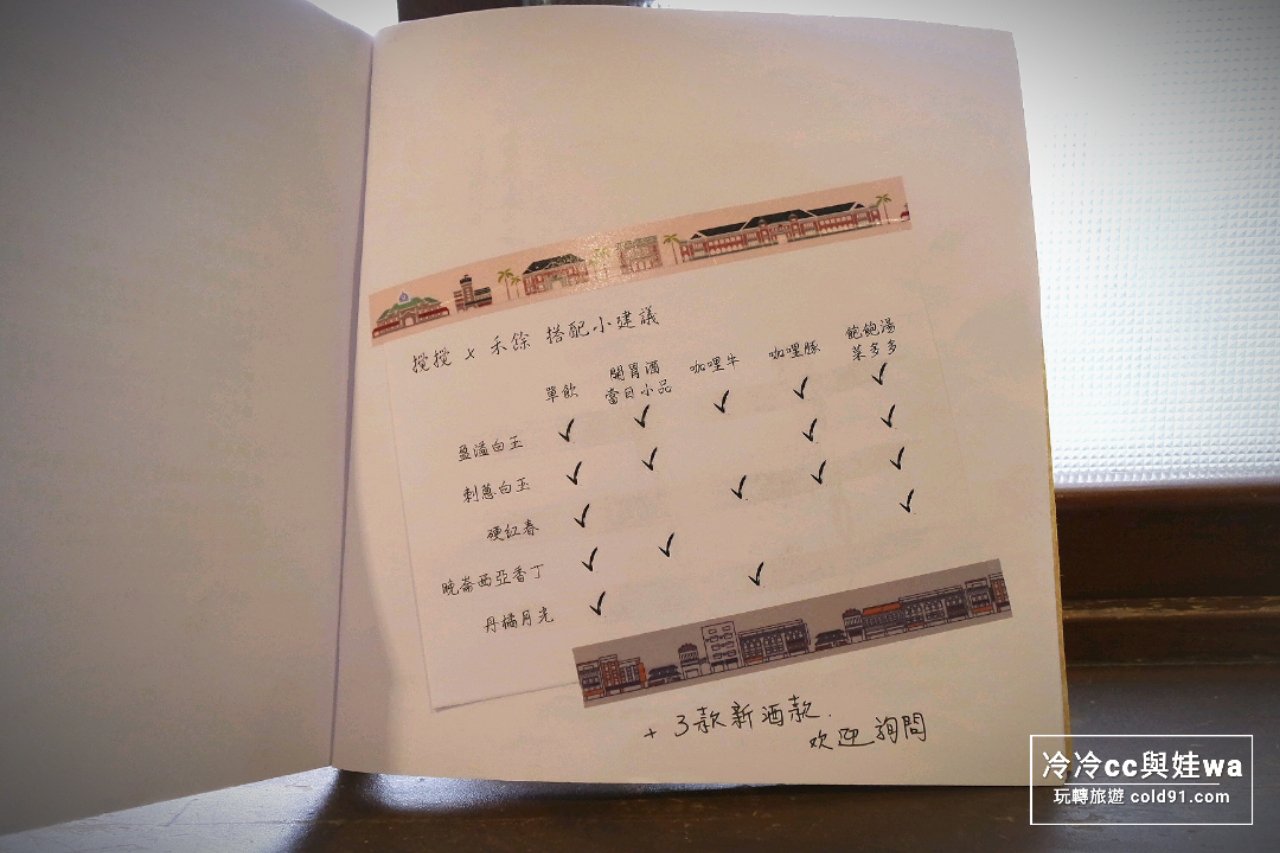 攪攪 x 禾餘 搭配小建議
單飲 開胃酒 當日小品 咖哩牛 咖哩豚 飽飽湯 菜多多
盈溢白玉 ✓ ✓ ✓ ✓ ✓
刺蔥白玉 ✓ ✓ ✓ ✓
硬紅春 ✓ ✓ ✓ ✓
晚崙西亞香丁 ✓ ✓ ✓
丹橘月光 ✓ ✓
+ 3款新酒款.
欢迎詢問
冷冷cc與娃wa
玩轉旅遊 cold91.com